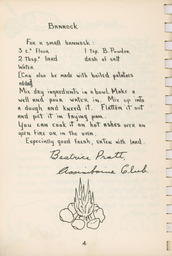 BANNOCK
For a small bannock:
3 c. flour 1 tsp. B. Powder
2 Tbsp. lard dash of salt
Water
(Can also be made with boiled potatoes added)
Mix dry ingredients in a bowl. Make a
well and pour water in. Mix up into
a dough and knead it. Flatten it out
and put it in frying pan.
You can cook it on hot ashes over an
open fire or in the oven.
Especially good fresh, eaten with lard.
Beatrice Pratt,
Assiniboine Club.
4